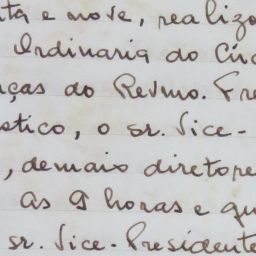 ta e nove, realizo
Ordinaria do Cír
ças do Revmo. Fre
stico, o sr. Vice-
, demais diretore
As 9 horas e qu
sr. Vice-Presidente